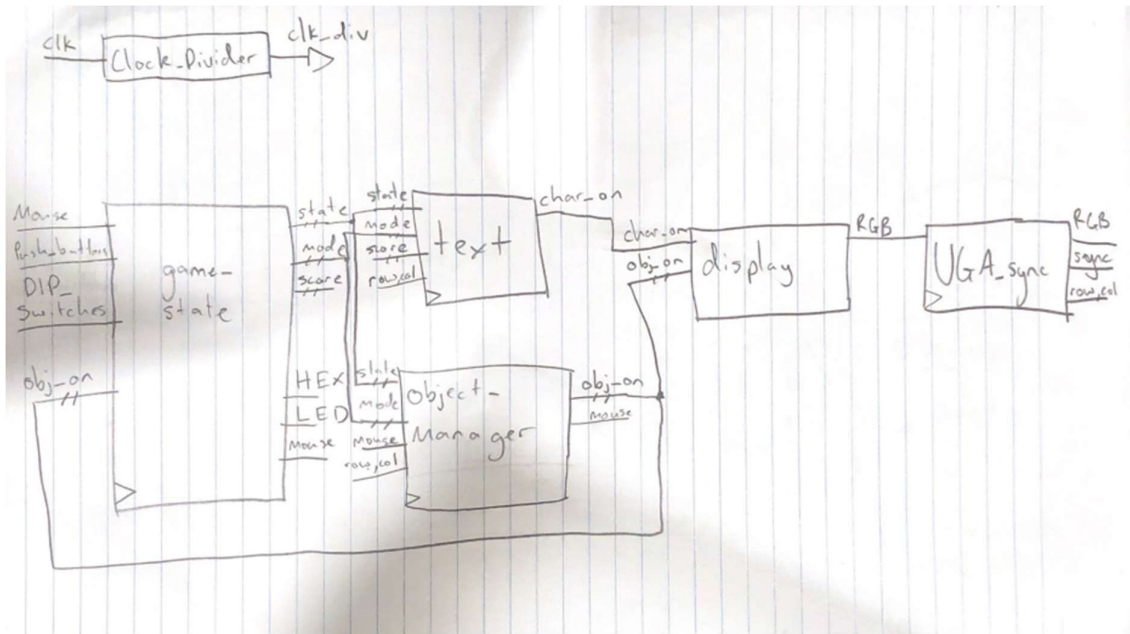 clk
Clock_Divider
clk_div
Mouse
Push_button
DIP_
Switches
obj_on
game_
state
state
mode
score
HEX
LED
Mouse
state
mode
score
row,col
text
char_on
state
Mode
Mouse
row,col
Object_
Manager
obj_on
mouse
char_on
obj_on
display
RGB
VGA_sync
RGB
sync
row,col